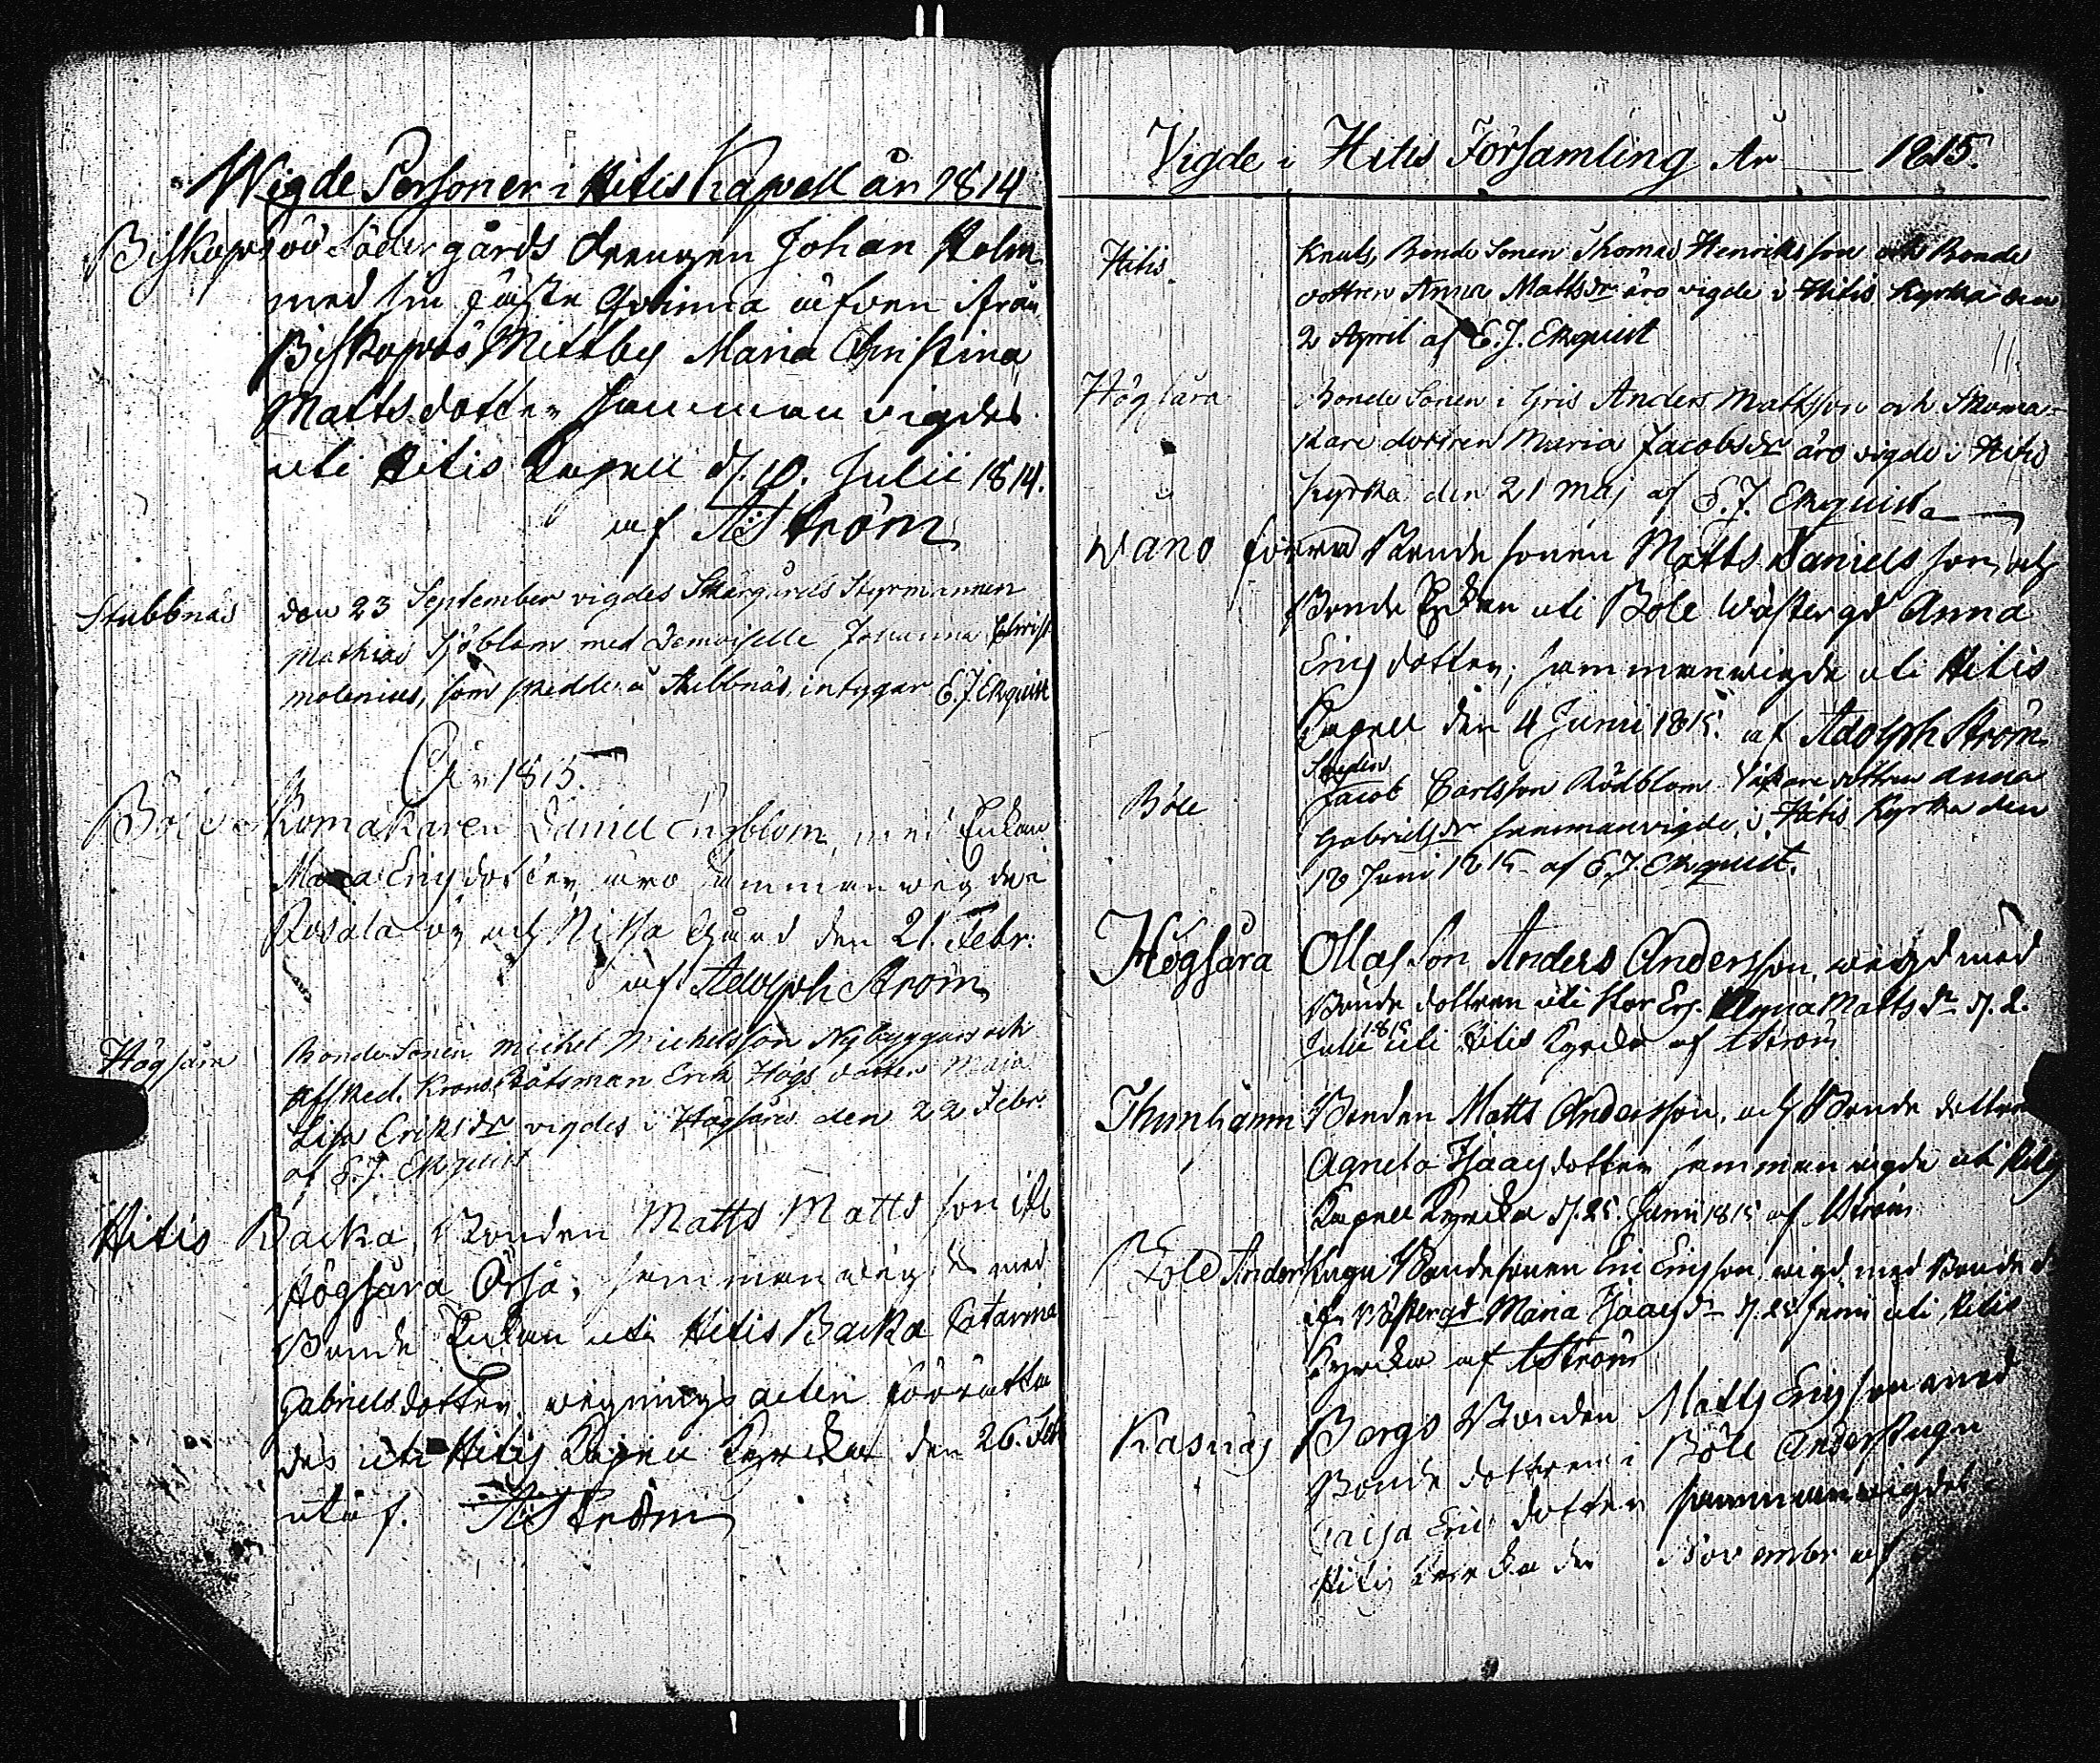 Wigde Personer i Hitis Kapell år 1814
Biskopsöö Södergårds drengen Johan Holm
med sin fäste Qvinna äfven ifrån
Biskopsö Mellby Maria Christina
Mattsdotter sammanvigdes
uti Hitis Capell d. 10. Julii 1814.
af AStröm
Stubbnäs den 23 September vigdes Skärgårds Styrmannen
Mathias Sjöblom med Demoiselle Johanna Christ.
molenius, som skedde å Stubbnäs, intygar E.J. Ekquist
År 1815.
Böle Skomakaren Daniel Engblom, med Enkan
Maria Ericsdotter äro sammanwigde
Rosala by och Nissa Gård den 21. Febr.
af Adolph Ström
Högsåra Bonde Sonen Michel Michelsson Nybyggars och
Afsked. Krono Båtsman Erik Högs dotter Maja
Lisa Eriksdr vigdes i Högsåra den 22 Febr.
af E.J. Ekquist
Hitis Backa, Bonden Matts Mattsson ifrå
Högsåra Örså; sammanwigdes med
Bonde Enkan uti Hitis Backa Catarina
Gabrielsdotter, wignings acten förrätta
des uti Hitis Capell Kyrcka den 26. Feb
utaf. AStröm
Vigde i Hitis Församling År 1815.
Hitis Knuts, Bonde Sonen Thomas Henriksson och Bonde
dottren Anna Mattsdr äro vigde i Hitis Kyrka den
2 April af E.J. Ekquist
Högsåra Bonde Sonen i Gris Anders Mattsson och Skoma-
kare dottren Maria Jacobsdr äro vigde i Hitis
Kyrka den 21 Maj af E.J. Ekquist
Wano förra Bonde sonen Matts Danielsson, och
Bonde Enkan uti Böle Wästergd Anna
Ericsdotter; sammanwigde uti Hitis
Capell den 4 Junii 1815. af Adolph Ström
Böle Jacob Carlsson Rödblom dottren Anna
Gabrielsdr sammanvigde i Hitis Kyrka den
18 Juni 1815 af E.J. Ekquist.
Högsåra Ollas Son Anders Andersson, wigd med
Bonde dottren uti Anna Mattsdr d. 2.
Julii 1815 uti Hitis Kyrcka af AStröm
Thunhamn Bonden Matts Andersson, och Bonde dottren
Agneta Isaacsdotter sammanvigde uti Hitis
Capell Kyrcka d. 25. Junii 1815 af AStröm
Böle Anderskuga Bondesonen Eric Ericsson, wigd med Bonde d
ifr Västergd Maria Isaacsdr d. 25 Junii uti Hitis
Kyrcka af AStröm
Kasnäs Bergs Bonden Matts Ericsson med
Bonde dottren i Böle Anderskuga
Caisa Erics dotter sammanwigdes i
Hitis Kyrcka den November af